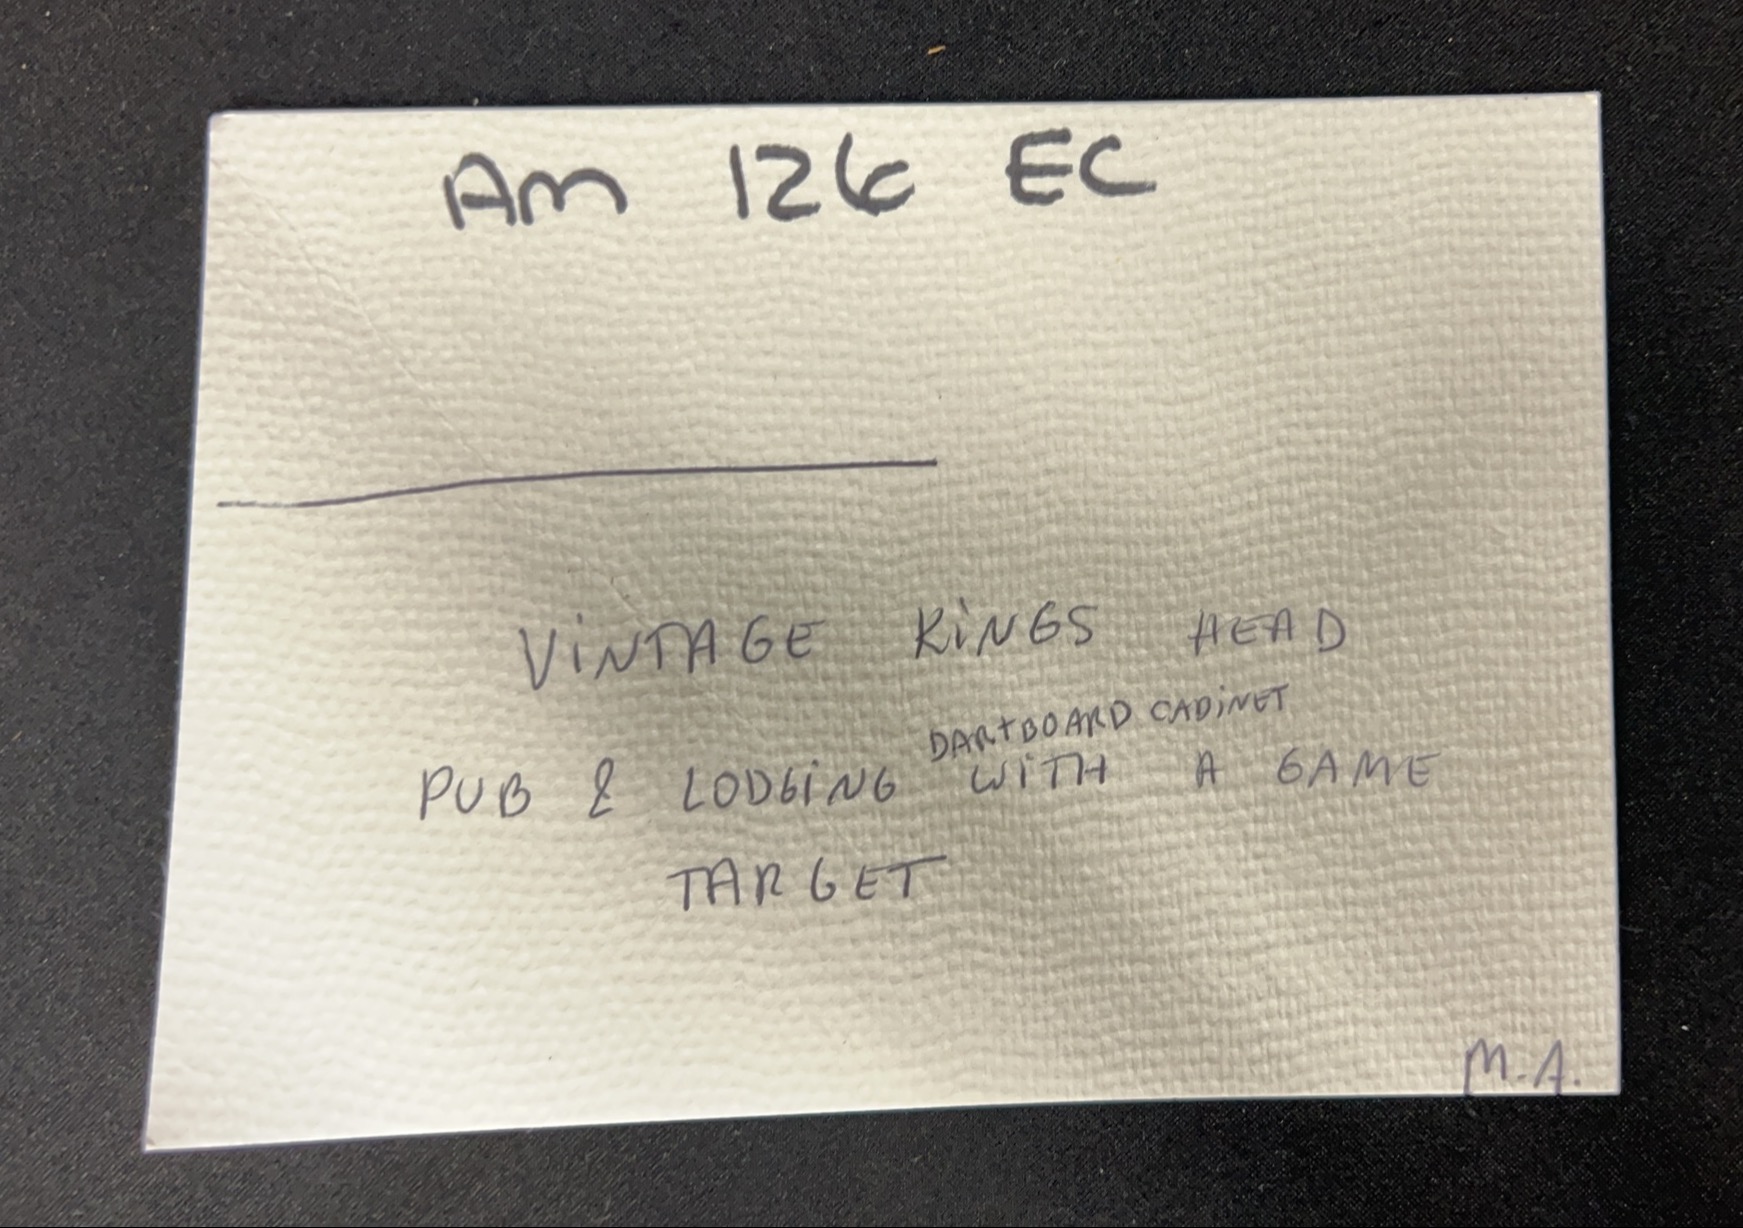 Am 126 EC
VINTAGE KINGS HEAD
DARTBOARD CADINET
PUB & LODGING WITH A GAME
TARGET
M.A.